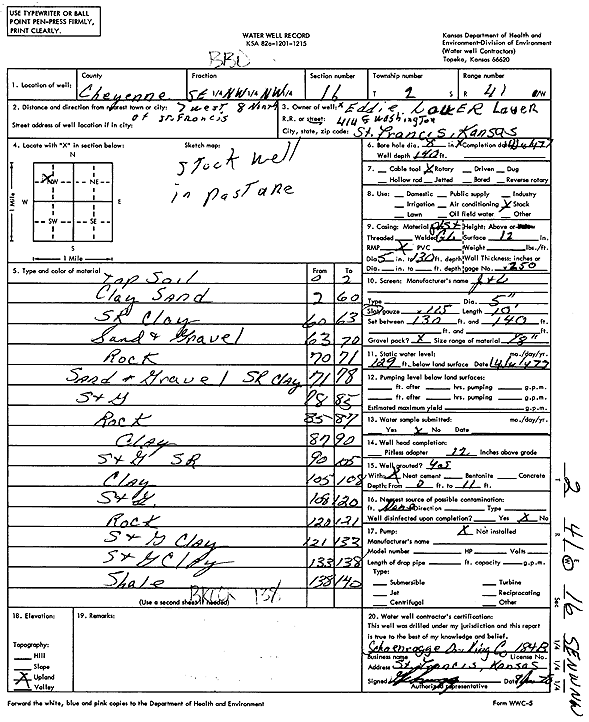 USE TYPEWRITER OR BALL
POINT PEN-PRESS FIRMLY,
PRINT CLEARLY.
WATER WELL RECORD
KSA 82a-1201-1215
Kansas Department of Health and
Environment-Division of Environment
(Water well Contractors)
Topeka, Kansas 66620
1. Location of well:
County
Cheyenne
Fraction
SE 1/4 NW 1/4 NW 1/4
Section number
16
Township number
T 2 S
Range number
R 41 E/W
2. Distance and direction from nearest town or city: 7 west 8 North
of St. Francis
Street address of well location if in city:
3. Owner of well: Eddie Layer
R.R. or street: 414 E Washington
City, state, zip code: St. Francis, Kansas
4. Locate with "X" in section below:
N
NW
NE
W
E
SW
SE
S
1 Mile
1 Mile
Sketch map:
Stock well
in pasture
5. Type and color of material
From To
Top Soil 0 2
Clay Sand 2 60
SR Clay 60 63
Sand & Gravel 63 70
Rock 70 71
Sand & Gravel SR Clay 71 78
S & G 78 85
Rock 85-87
Clay 87 90
S & G SR 90 105
Clay 105 108
S & G 108 120
Rock 120 121
S & G Clay 121 133
S & G Clay 133 138
Shale 138 140
(Use a second sheet if needed)
6. Bore hole dia. in. Completion date
Well depth 140 ft.
7. Cable tool X Rotary Driven Dug
Hollow rod Jetted Bored Reverse rotary
8. Use: Domestic Public supply Industry
Irrigation Air conditioning X Stock
Lawn Oil field water Other
9. Casing: Material Height: Above or below
Threaded Welded Surface 12 in.
RMP X PVC Weight lbs./ft.
Dia. 5 in. to 130 ft. depth Wall Thickness: inches or
Dia. in. to ft. depth gage No. .250
10. Screen: Manufacturer's name
Type Dia. 5"
Slot/gauze Length 10'
Set between 130 ft. and 140 ft.
ft. and ft.
Gravel pack? X Size range of material
11. Static water level: mo./day/yr.
129 ft. below land surface Date
12. Pumping level below land surfaces:
ft. after hrs. pumping g.p.m.
ft. after hrs. pumping g.p.m.
Estimated maximum yield g.p.m.
13. Water sample submitted: mo./day/yr.
Yes X No Date
14. Well head completion:
Pitless adapter 12 Inches above grade
15. Well grouted? yes
With: X Neat cement Bentonite Concrete
Depth: From 0 ft. to 11 ft.
16. Nearest source of possible contamination:
ft. None Direction Type
Well disinfected upon completion? Yes X No
17. Pump: X Not installed
Manufacturer's name
Model number HP Volts
Length of drop pipe ft. capacity g.p.m.
Type:
Submersible Turbine
Jet Reciprocating
Centrifugal Other
18. Elevation:
Topography:
Hill
Slope
X Upland
Valley
19. Remarks:
20. Water well contractor's certification:
This well was drilled under my jurisdiction and this report
is true to the best of my knowledge and belief.
Business name License No.
Address St. Francis, Kansas
Signed
Authorized representative
Forward the white, blue and pink copies to the Department of Health and Environment
Form WWC-5
T 2 R 41 W Sec 16 SENWNW
1/4 1/4 1/4